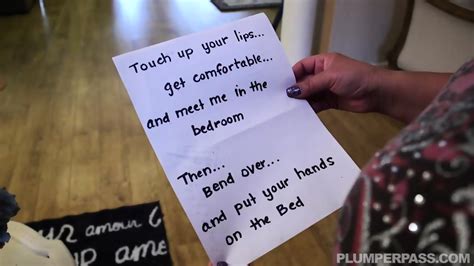 Touch up your lips...
get comfortable...
and meet me in the
bedroom
Then...
Bend over...
and put your hands
on the Bed
amour
ame
PLUMPERPASS.COM